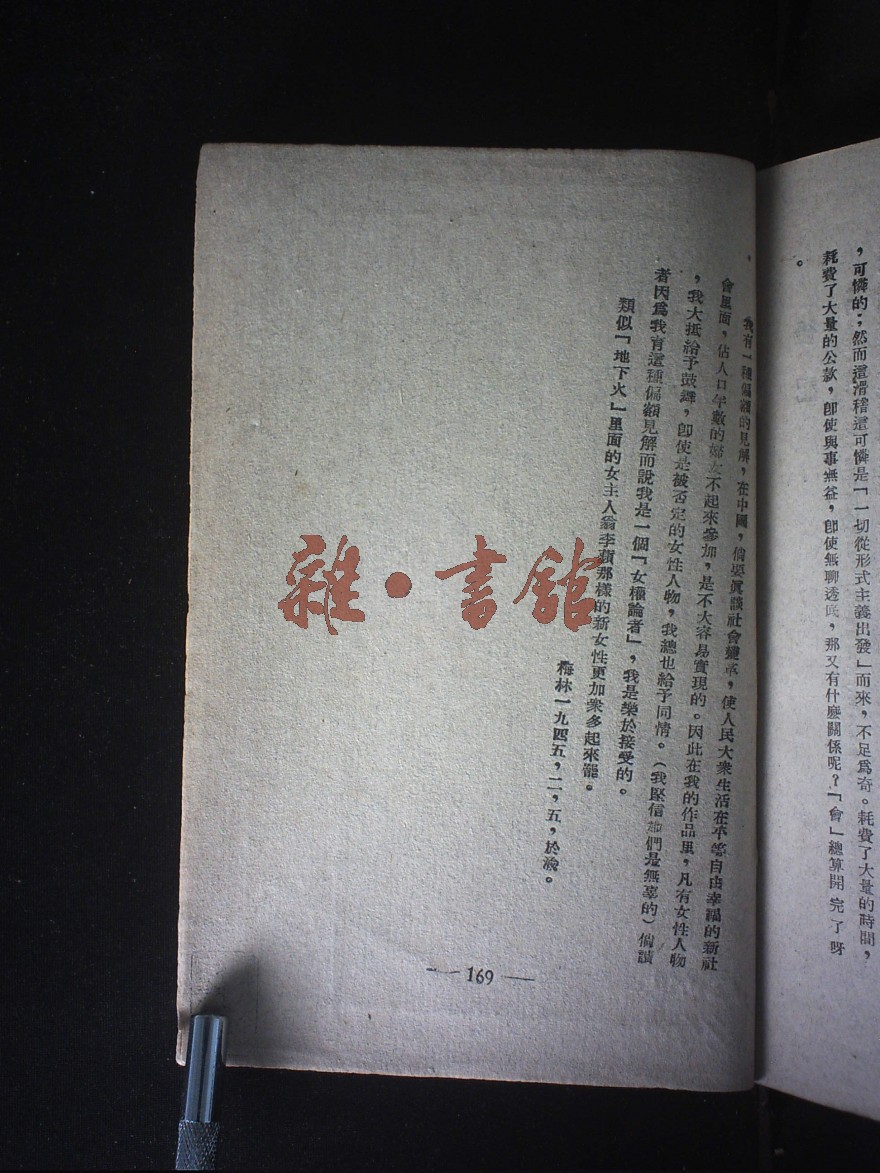 ，可憐的；然而這滑稽這可憐是「一切從形式主義出發」而來，不足爲奇。耗費了大量的時間，
耗費了大量的公款，卽使與事無益，卽使無聊透底，那又有什麽關係呢？「會」總算開完了呀
。
我有一種偏頗的見解，在中國，倘要眞談社會變革，使人民大衆生活在平等自由幸福的新社
會里面，佔人口半數的婦女不起來參加，是不大容易實現的。因此在我的作品里，凡有女性人物
，我大抵給予鼓舞，卽使是被否定的女性人物，我總也給予同情。（我堅信她們是無辜的）倘讀
者因爲我有這種偏頗見解而說我是一個「女權論者」，我是樂於接受的。
類似「地下火」里面的女主人翁李蘋那樣的新女性更加衆多起來罷。
梅林一九四五，二，五，於渝。
— 169 —
雜·書館